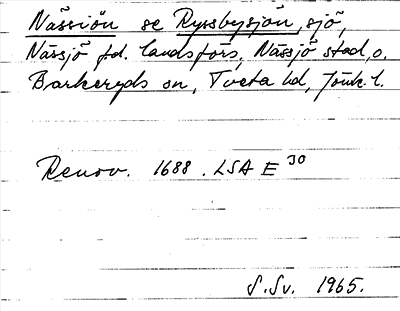 Nässiön se Ryssbysjön, sjö,
Nässjö f.d. landsförs, Nässjö stad, o.
Barkeryds sn, Tveta hd, Jönk. l.
Renov. 1688. LSA E 30
S. Sv. 1965.